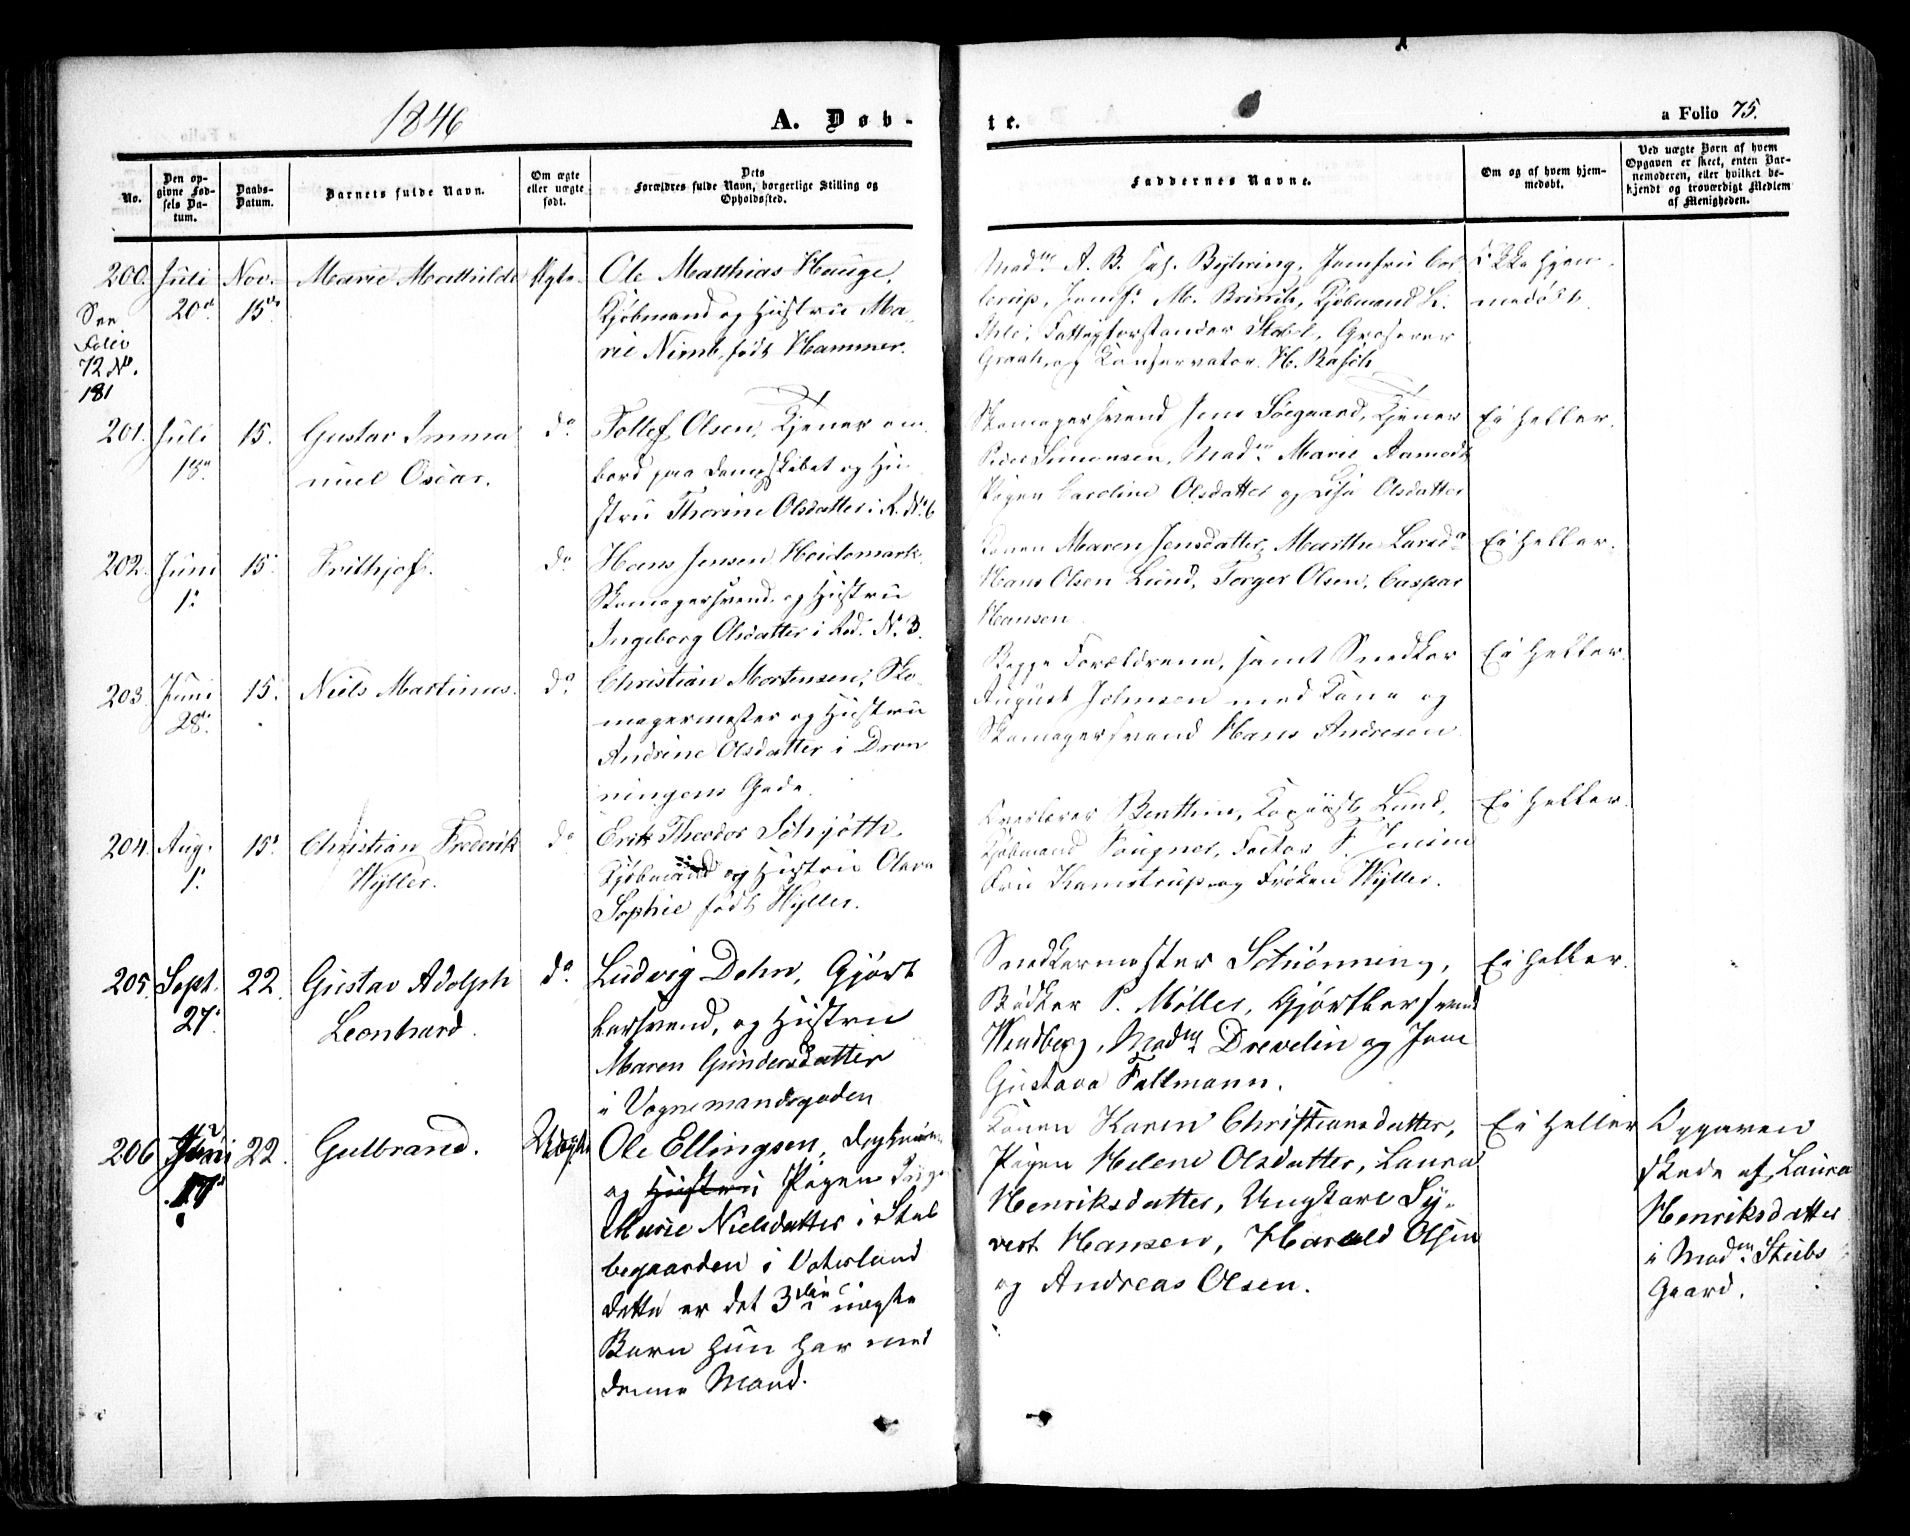 1846
A. Døb-
te.
a Folio 75.
No.
Den op-
givne Fød-
sels Da-
tum.
Daabs-
Datum.
Barnets fulde Navn.
Om ægte
eller uægte
født.
Dets
Forældres fulde Navn, borgerlige Stilling og
Opholdssted.
Faddernes Navne.
Om og af hvem hjem-
medøbt.
Ved uægte Børn af hvem
Opgaven er skeet, enten Bar-
nemoderen, eller hvilket be-
kjendt og troværdigt Medlem
af Menigheden.
200.
See
Folio
72 No.
181
Juli
20de
Nov.
15de
Marie Mathilde
Ægte
Ole Matthias Hauge,
Kjøbmand og Hustru Ma-
rie Nimb, født Hammer.
Madme A. B. Bÿhring, Jomfru
Jomf. M. Brinch, Kjøbmand
Fattigforstander Grosserer
og Conservator H. Rasch
Ikke hjem-
medøbt.
201.
Juli
18de
15.
Gustav Imma-
nuel Oscar.
do
Tollef Olsen, Tjener om-
bord paa Dampskibet og Hu-
stru Thorine Olsdatter i R. No 6
Skomagersvend Jens Søegaard, Tjener
Peder Simonsen, Madme Marie Aamodt
Pigen Caroline Olsdatter og Lisa Olsdatter
Ei heller.
202.
Juni
1.
15.
Frithjof.
do
Hans Jensen Heidemark
Skomagersvend og Hustru
Ingeborg Olsdatter i Rod. No 3.
Konen Maren Jensdatter, Marthe Larsdr
Hans Olsen Lund, Torger Olsen, Caspar
Hansen
Ei heller.
203.
Juni
28.
15.
Niels Martinus.
do
Christian Mortensen, Sko-
magermester og Hustru
Andrine Olsdatter i Dron-
ningens Gade.
Begge Forældrene, samt Snedker
August Johnsen med Kone og
Skomagersvend Hans Andresen
Ei heller.
204.
Aug.
1.
15.
Christian Frederik
Wÿller.
do
Erik Theodor Schjøtt,
Kjøbmand og Hustru Olava
Sophie født Wÿller.
Benthin, Kopiist Lund,
Kjøbmand Fougner, Factor F. Jensen
Fru Kamstrup og Frøken Wÿller.
Ei heller.
205.
Sept.
27.
22.
Gustav Adolph
Leonhard.
do
Ludvig Dehn, Gjørt-
lersvend, og Hustru
Maren Gundersdatter
i Vognmandsgaden
Snedkermester Schiønning,
Bødker P. Møller, Gjørtlersvend
Windberg, Madme Drevelin og Jomf
Gustava Fallmann.
Ei heller.
206
Juni
17.
22.
Gulbrand.
Uægte
Ole Ellingsen,
og Hustru Pigen
Marie Nielsdatter i Stub-
begaarden i Vaterland
dette er det 3die uægte
Barn hun har med
denne Mand.
Konen Karen Christiansdatter,
Pigen Helene Olsdatter, Laura
Henriksdatter, Ungkarl Sÿ-
vert Hansen, Harald Olsen
og Andreas Olsen.
Ei heller
Opgaven
skede af Laura
Henriksdatter
i Madme Stubs
Gaard.